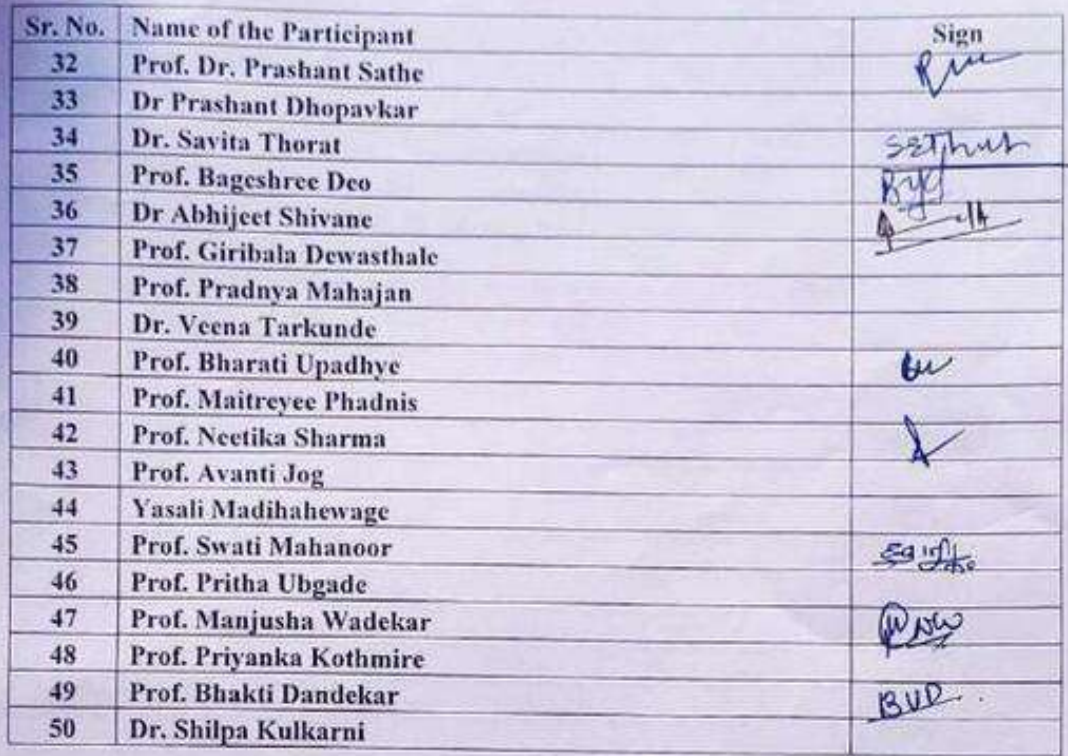 Sr. No. Name of the Participant Sign
32 Prof. Dr. Prashant Sathe
33 Dr Prashant Dhopavkar
34 Dr. Savita Thorat
35 Prof. Bageshree Deo
36 Dr Abhijeet Shivane
37 Prof. Giribala Dewasthale
38 Prof. Pradnya Mahajan
39 Dr. Veena Tarkunde
40 Prof. Bharati Upadhye
41 Prof. Maitreyee Phadnis
42 Prof. Neetika Sharma
43 Prof. Avanti Jog
44 Yasali Madihahewage
45 Prof. Swati Mahanoor
46 Prof. Pritha Ubgade
47 Prof. Manjusha Wadekar
48 Prof. Priyanka Kothmire
49 Prof. Bhakti Dandekar BVD
50 Dr. Shilpa Kulkarni